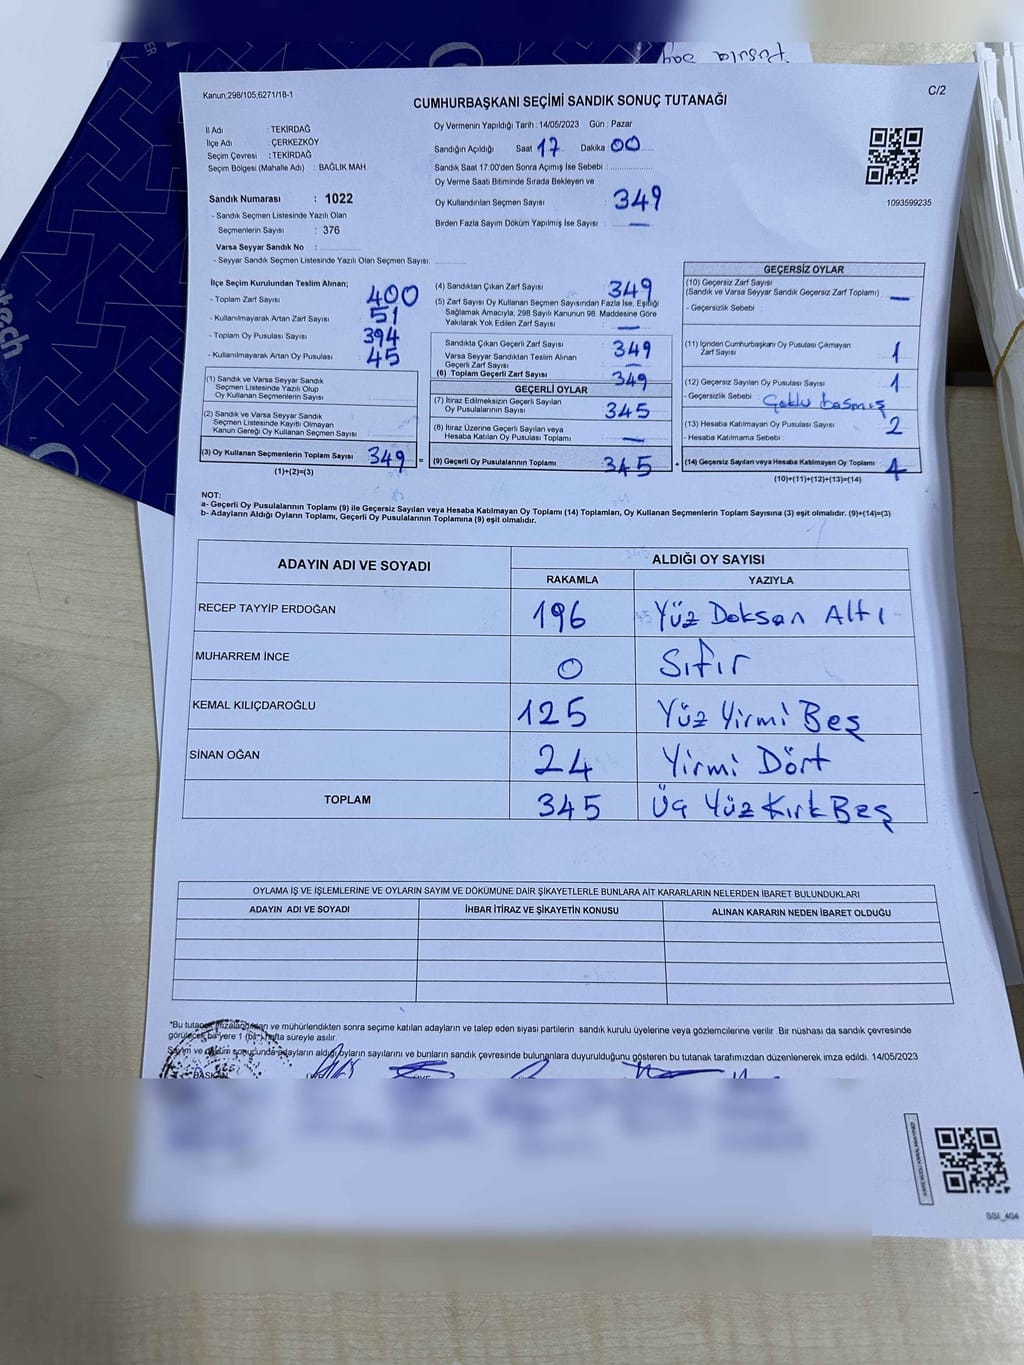 Pusula say
ER
tech
Kanun,298/105,6271/18-1
C/2
CUMHURBAŞKANI SEÇİMİ SANDIK SONUÇ TUTANAĞI
İl Adı : TEKİRDAĞ
İlçe Adı : ÇERKEZKÖY
Seçim Çevresi : TEKİRDAĞ
Seçim Bölgesi (Mahalle Adı) : BAĞLIK MAH
Oy Vermenin Yapıldığı Tarih : 14/05/2023 Gün : Pazar
Sandığın Açıldığı Saat 17 Dakika : 00
Sandık Saat 17:00'den Sonra Açımış İse Sebebi :
Oy Verme Saati Bitiminde Sırada Bekleyen ve
Oy Kullandırılan Seçmen Sayısı : 349
Birden Fazla Sayım Döküm Yapılmış İse Sayısı : —
1093599235
Sandık Numarası : 1022
- Sandık Seçmen Listesinde Yazılı Olan
Seçmenlerin Sayısı : 376
Varsa Seyyar Sandık No :
- Seyyar Sandık Seçmen Listesinde Yazılı Olan Seçmen Sayısı:
İlçe Seçim Kurulundan Teslim Alınan;
- Toplam Zarf Sayısı : 400
- Kullanılmayarak Artan Zarf Sayısı : 51
- Toplam Oy Pusulası Sayısı : 394
- Kullanılmayarak Artan Oy Pusulası : 45
(1) Sandık ve Varsa Seyyar Sandık
Seçmen Listesinde Yazılı Olup
Oy Kullanan Seçmenlerin Sayısı
(2) Sandık ve Varsa Seyyar Sandık
Seçmen Listesinde Kayıtlı Olmayan
Kanun Gereği Oy Kullanan Seçmen Sayısı
(3) Oy Kullanan Seçmenlerin Toplam Sayısı 349 =
(1)+(2)=(3)
(4) Sandıktan Çıkan Zarf Sayısı : 349
(5) Zarf Sayısı Oy Kullanan Seçmen Sayısından Fazla İse, Eşitliği
Sağlamak Amacıyla; 298 Sayılı Kanunun 98. Maddesine Göre
Yakılarak Yok Edilen Zarf Sayısı : —
Sandıkta Çıkan Geçerli Zarf Sayısı : 349
Varsa Seyyar Sandıktan Teslim Alınan
Geçerli Zarf Sayısı : —
(6) Toplam Geçerli Zarf Sayısı : 349
GEÇERLİ OYLAR
(7) İtiraz Edilmeksizin Geçerli Sayılan
Oy Pusulalarının Sayısı : 345
(8) İtiraz Üzerine Geçerli Sayılan veya
Hesaba Katılan Oy Pusulası Toplamı : —
(9) Geçerli Oy Pusulalarının Toplamı : 345 +
GEÇERSİZ OYLAR
(10) Geçersiz Zarf Sayısı
(Sandık ve Varsa Seyyar Sandık Geçersiz Zarf Toplamı) : —
- Geçersizlik Sebebi :
(11) İçinden Cumhurbaşkanı Oy Pusulası Çıkmayan
Zarf Sayısı : 1
(12) Geçersiz Sayılan Oy Pusulası Sayısı : 1
- Geçersizlik Sebebi : Çoklu basmış
(13) Hesaba Katılmayan Oy Pusulası Sayısı : 2
- Hesaba Katılmama Sebebi :
(14) Geçersiz Sayılan veya Hesaba Katılmayan Oy Toplamı : 4
(10)+(11)+(12)+(13)=(14)
NOT:
a- Geçerli Oy Pusulalarının Toplamı (9) ile Geçersiz Sayılan veya Hesaba Katılmayan Oy Toplamı (14) Toplamları, Oy Kullanan Seçmenlerin Toplam Sayısına (3) eşit olmalıdır. (9)+(14)=(3)
b- Adayların Aldığı Oyların Toplamı, Geçerli Oy Pusulalarının Toplamına (9) eşit olmalıdır.
ADAYIN ADI VE SOYADI
ALDIĞI OY SAYISI
RAKAMLA YAZIYLA
RECEP TAYYİP ERDOĞAN 196 Yüz Doksan Altı
MUHARREM İNCE 0 Sıfır
KEMAL KILIÇDAROĞLU 125 Yüz Yirmi Beş
SİNAN OĞAN 24 Yirmi Dört
TOPLAM 345 Üç Yüz Kırk Beş
OYLAMA İŞ VE İŞLEMLERİNE VE OYLARIN SAYIM VE DÖKÜMÜNE DAİR ŞİKAYETLERLE BUNLARA AİT KARARLARIN NELERDEN İBARET BULUNDUKLARI
ADAYIN ADI VE SOYADI İHBAR İTİRAZ VE ŞİKAYETİN KONUSU ALINAN KARARIN NEDEN İBARET OLDUĞU
"Bu tutanak imzalandıktan ve mühürlendikten sonra seçime katılan adayların ve talep eden siyasi partilerin sandık kurulu üyelerine veya gözlemcilerine verilir. Bir nüshası da sandık çevresinde
görülecek bir yere 1 (bir) hafta süreyle asılır.
Sayım ve döküm sonucunda adayların aldığı oyların sayılarını ve bunların sandık çevresinde bulunanlara duyurulduğunu gösteren bu tutanak tarafımızdan düzenlenerek imza edildi. 14/05/2023
BAŞKAN
SSİ_404